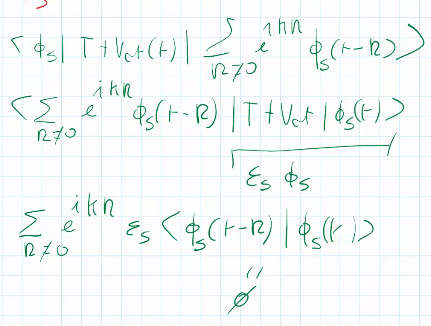 ⟨ϕₛ| T+Vₐₜ(r) | ∑_{R≠0} e^{ikR} ϕₛ(r-R)⟩
⟨∑_{R≠0} e^{ikR} ϕₛ(r-R) | T+Vₐₜ | ϕₛ(r)⟩
εₛ ϕₛ
∑_{R≠0} e^{ikR} εₛ ⟨ϕₛ(r-R) | ϕₛ(r)⟩
"
0